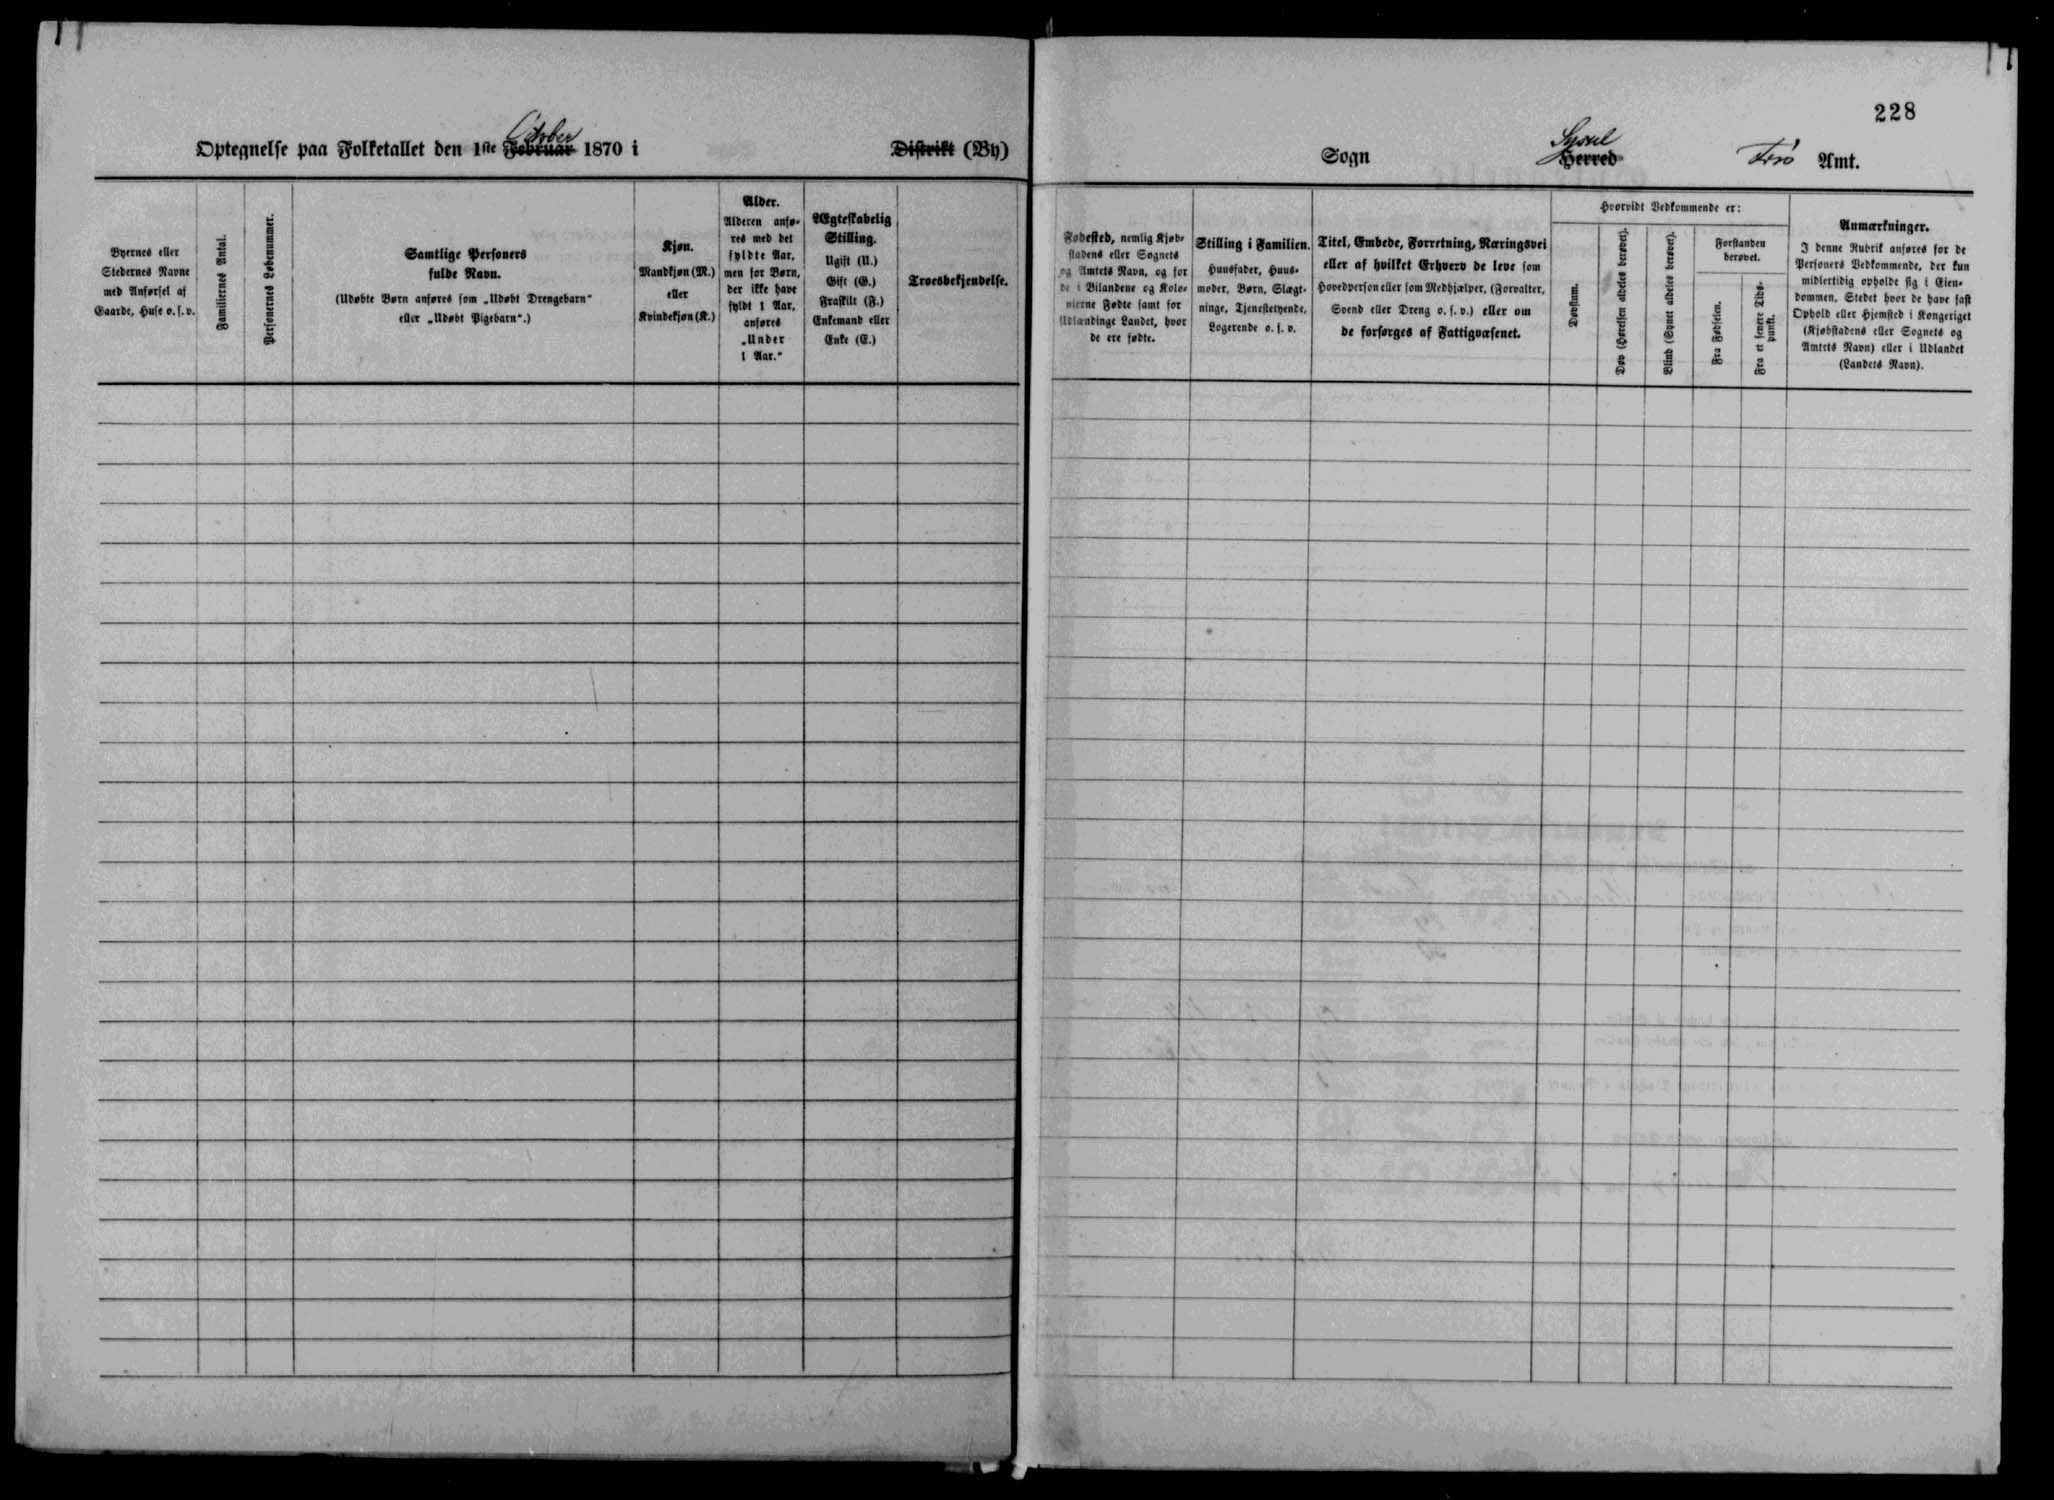 228
Optegnelse paa Folketallet den 1ste Februar October 1870 i Distrikt (By)
Sogn Herred Syssel Færø Amt.
Byernes eller
Stedernes Navne
med Anførsel af
Gaarde, Huse o. s. v.
Familiernes Antal.
Personernes Løbenummer.
Samtlige Personers
fulde Navn.
(Udøbte Børn anføres som „Udøbt Drengebarn"
eller „Udøbt Pigebarn".)
Kjøn.
Mandkjøn (M.)
eller
Kvindekjøn (K.)
Alder.
Alderen anfø-
res med det
fyldte Aar,
men for Børn,
der ikke have
fyldt 1 Aar,
anføres
„Under
1 Aar."
Ægteskabelig
Stilling.
Ugift (U.)
Gift (G.)
Fraskilt (F.)
Enkemand eller
Enke (E.)
Troesbekjendelse.
Fødested, nemlig Kjøb-
stadens eller Sognets
og Amtets Navn, og for
de i Bilandene og Kolo-
nierne Fødte samt for
Udlændinge Landet, hvor
de ere fødte.
Stilling i Familien.
Huusfader, Huus-
moder, Børn, Slægt-
ninge, Tjenestetyende,
Logerende o. s. v.
Titel, Embede, Forretning, Næringsvei
eller af hvilket Erhverv de leve som
Hovedperson eller som Medhjælper, (Forvalter,
Svend eller Dreng o. s. v.) eller om
de forsørges af Fattigvæsenet.
Hvorvidt Vedkommende er:
Døvstum.
Døv (Hørelsen aldeles berøvet).
Blind (Synet aldeles berøvet).
Forstanden
berøvet.
Fra Fødselen.
Fra et senere Tids-
punkt.
Anmærkninger.
I denne Rubrik anføres for de
Personers Vedkommende, der kun
midlertidig opholde sig i Eien-
dommen, Stedet hvor de have fast
Ophold eller Hjemsted i Kongeriget
(Kjøbstadens eller Sognets og
Amtets Navn) eller i Udlandet
(Landets Navn).